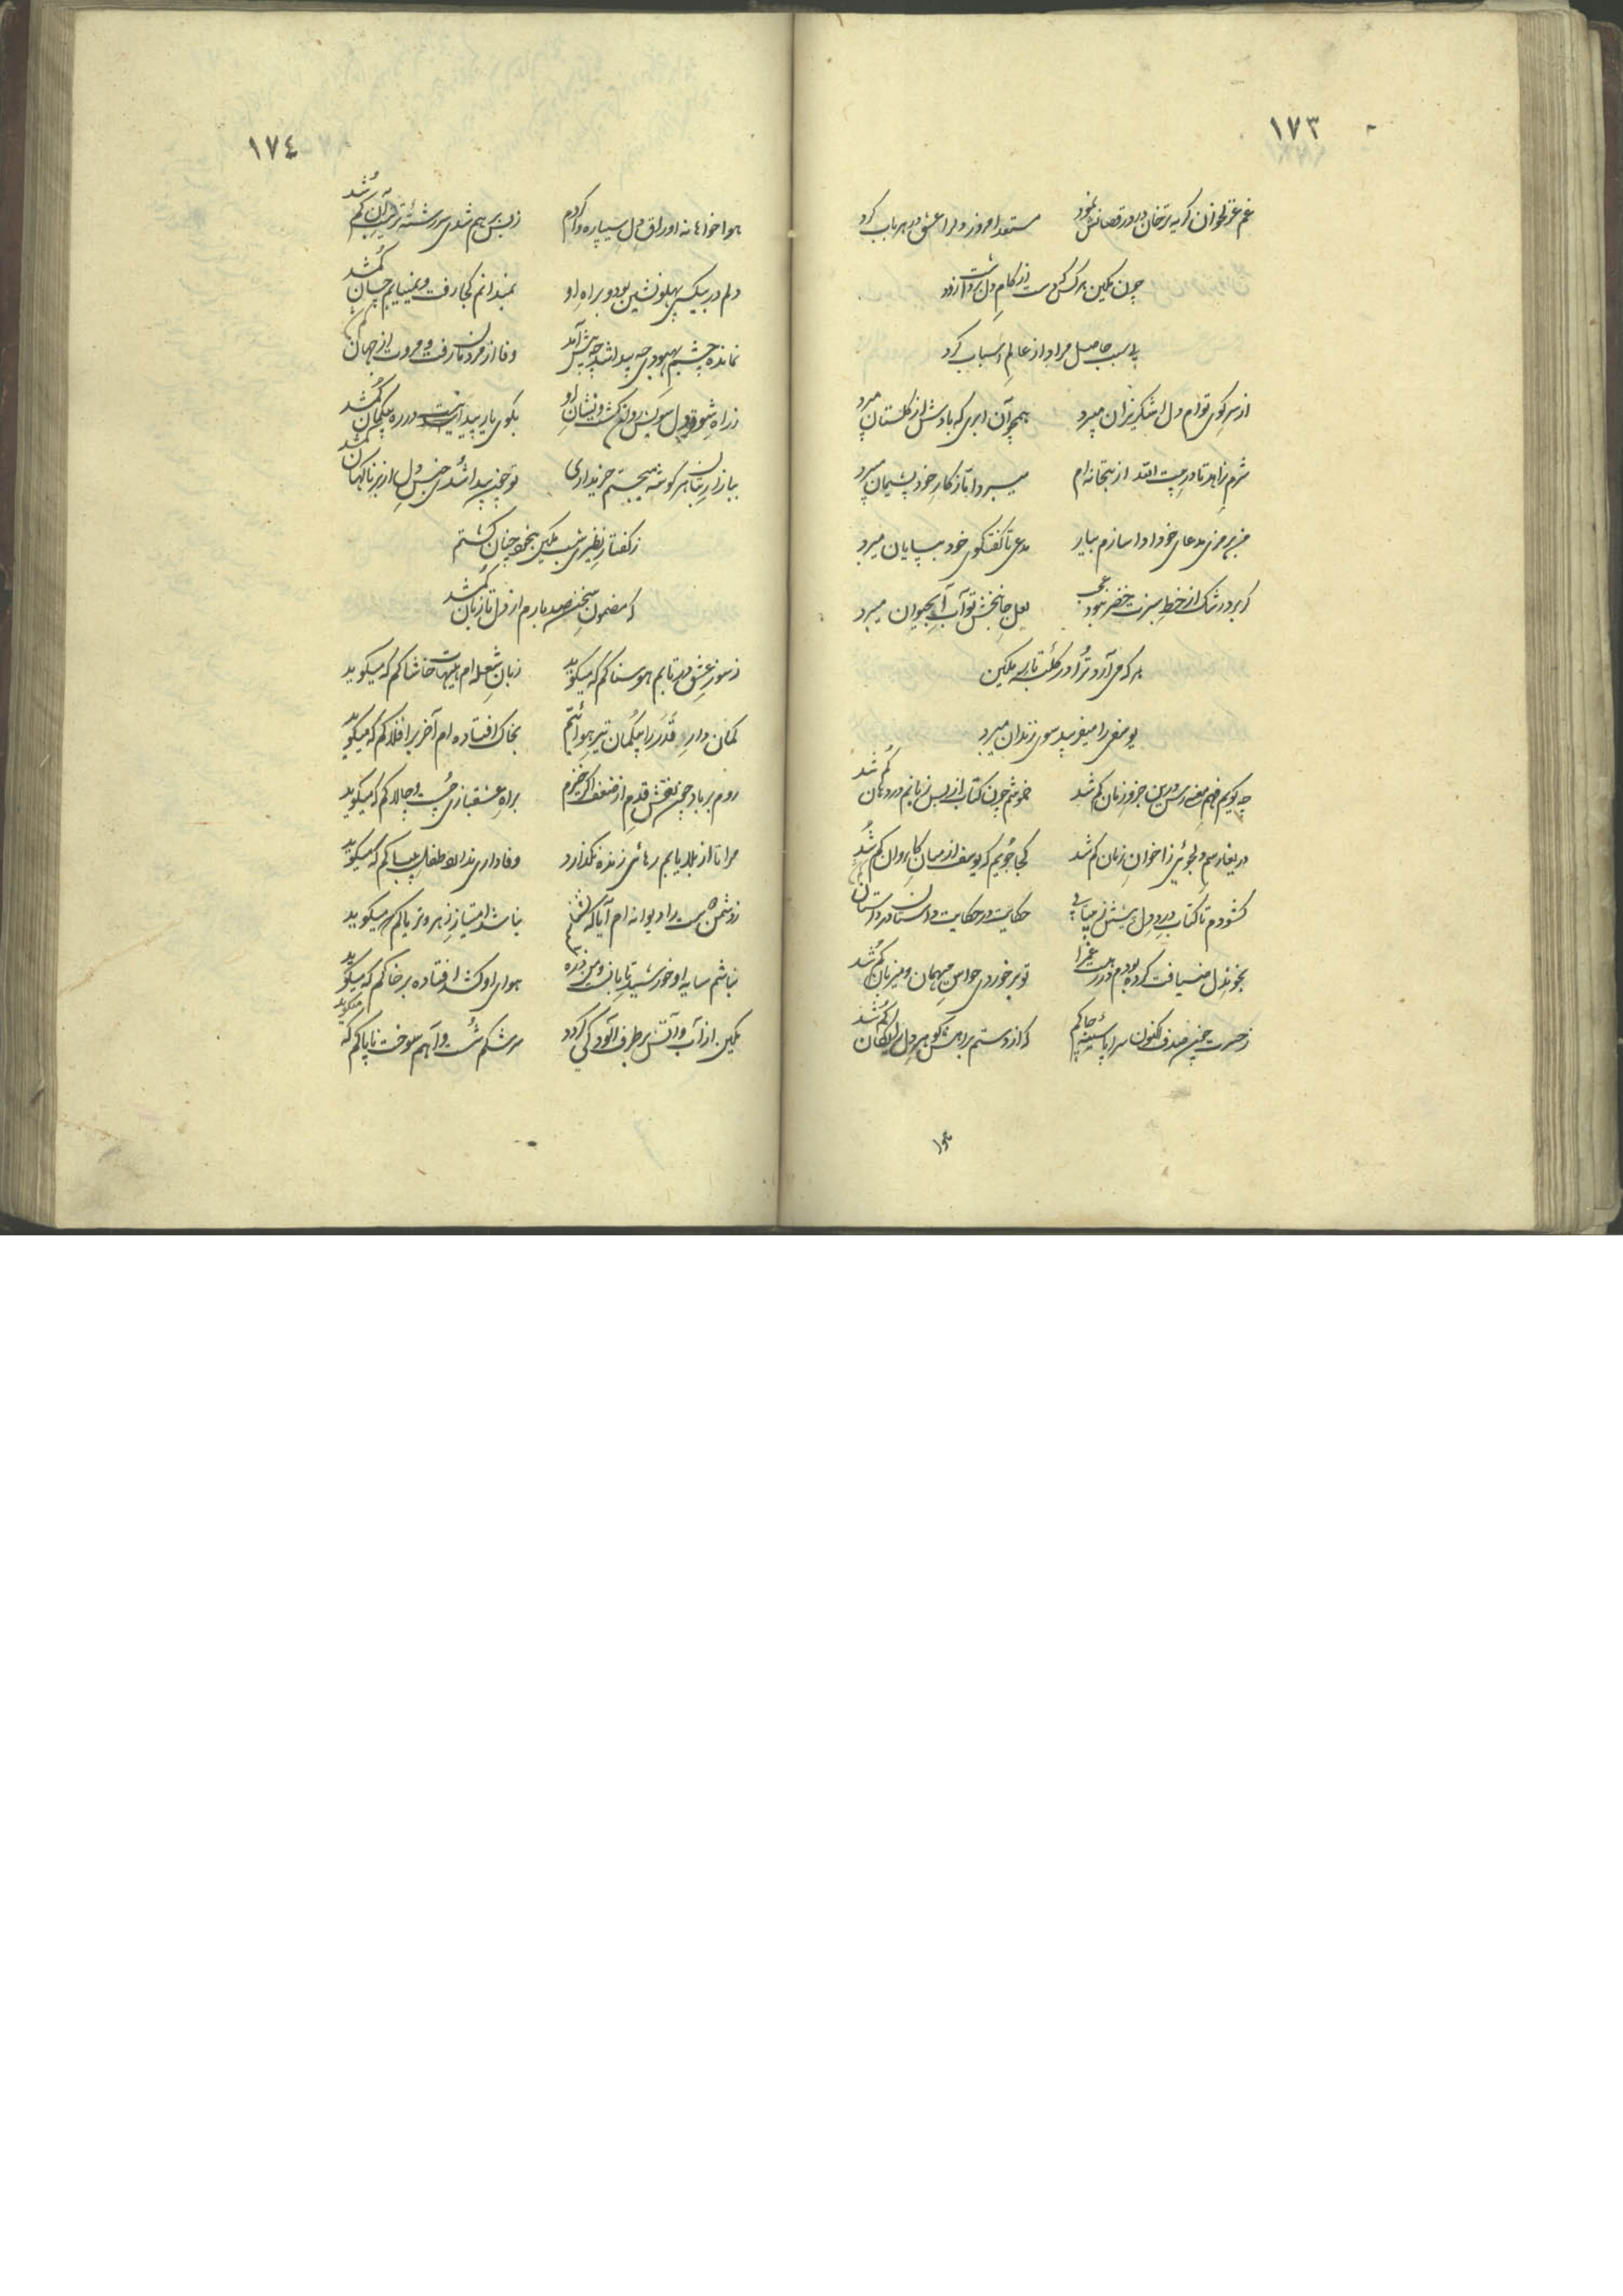 ١٧٣
غم غزلخوان گریه رقصان درد نمود مستعد امروز دلرا عشق در هر باب کرد
چون مکین هر کس دست از کام دل برداشت زود
بی سبب حاصل مراد از عالم اسباب کرد
از سر کوی توام دل اشکریزان میبرد همچو آن ابری که بادش از گلستان میبرد
شرم زاهد تا در بیت افتد از بتخانه ام میبرد اما ز کار خود پشیمان میبرد
من برمزی مدعای خود ادا سازم بیار مدعی تا گفتگوی خود بپایان میبرد
گر برد رشک از خط سبزت خضر نبود عجب لعل جانبخش تو آب آبحیوان میبرد
هر که می آرد ترا در کلبه تار مکین
یوسفی را میفریبد سوی زندان میبرد
چه گویم فهم معنی رس درین جزو زمان گم شد خموشم چون کتاب از بس زبانم در دهان گم شد
دریغا رسم دلجوئی ز اخوان زمان گم شد کجا جویم که یوسف از میان کاروان گم شد
گشودم تا کتاب درد دل پیشش ز بیتابی حکایت در حکایت داستان در داستان گم شد
بخوندل ضیافت کرده بودم در رهت غم را تو برخوردی حواس میهمان و میزبان گم شد
ز حسرت چون صدف اکنون سراپا سینه چاکم که از دستم براهش گوهر دل رایگان گم شد
هوا
١٧٤
هواخواهانه اوراق دل سیپاره وا کردم ز بس برهم شدی سررشته ترتیب آن گم شد
دلم در بیکسی پهلونشین بود و براه او نمیدانم کجا رفت و نمییابم چسان گم شد
نمانده چشم بهبودی چه پیدا شد چه پیش آمد وفا از مردمان رفت و مروت از جهان گم شد
ز راه شوق دل سویش روان گشت و نشان او بکوی یار پیدا نیست در ره بیگمان گم شد
ببازار بتان هر گوشه میجستم خریداری تو چون پیدا شدی جنس دل از بر ناگهان گم شد
ز گفتار نظیری شب مکین بیخود چنان گشتم
که مضمون سخن صد بارم از دل تا زبان گم شد
ز سوز عشق در تابم هوسناکم که میگوید زبان شعله ام هیهات خاشاکم که میگوید
کمان دار قدر را بیگمان تیر هوائیم بخاک افتاده ام آخر بر افلاکم که میگوید
روم بر باد چون نقش قدم از ضعف اگر خیزم براه عشقبازی چست و چالاکم که میگوید
مرا تا از بلا یابم رهائی زنده نگذارد وفاداری نداند طفل بیباکم که میگوید
ز دشمن دوست را دیوانه ام نباشد امتیاز زهر و تریاکم که میگوید
نباشم سایه او خورشید تابان و من ذره هوای او کشد افتاده بر خاکم که میگوید
مکین از آب و آتش برطرف آلودگی گردد سرشکم شست و آهم سوخت ناپاکم که میگوید